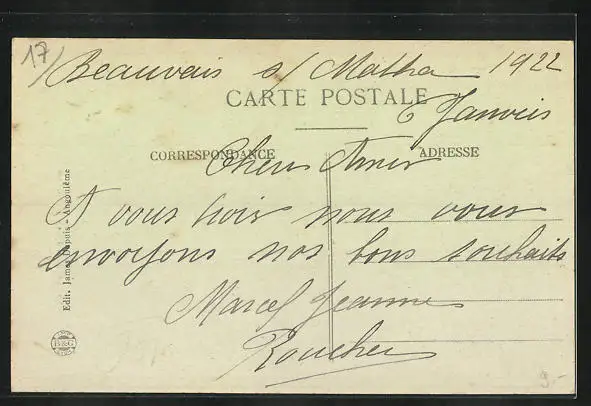 17/ Beauvais s/ Matha 1922
CARTE POSTALE
6 Janvier
CORRESPONDANCE
ADRESSE
Chers Amis
A vous trois nous vous
envoyons nos bons souhaits
Marcel Jeanne
Roucher
Edit. James Dupuis - Angoulême
B&G
9.-